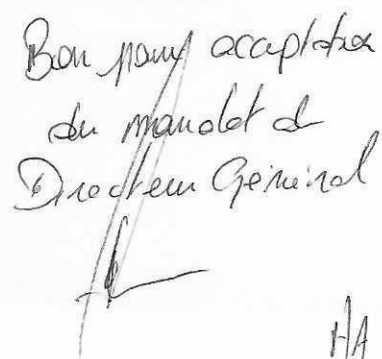 Bon pour acceptation
du mandat de
Directeur Général
HA